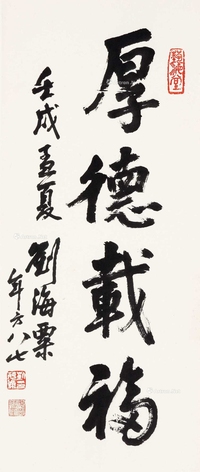 厚德載福
壬戌孟夏
劉海粟
年方八七